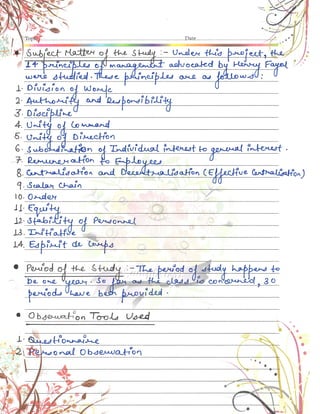 Date
* Subject Matter of the Study :- Under this project, the
14 principles of management advocated by Henry Fayol
were studied. These principles are as follows :
1. Division of Work
2. Authority and Responsibility
3. Discipline
4. Unity of Command
5. Unity of Direction
6. Subordination of Individual interest to general interest.
7. Remuneration to Employees
8. Centralisation and Decentralisation (Effective Centralisation)
9. Scalar Chain
10. Order
11. Equity
12. Stability of Personnel
13. Initiative
14. Espirit de Corps
• Period of the Study :- The period of study happens to
be one year. So far as the class is concerned, 30
periods have been provided.
• Observation Tools Used
1. Questionnaire
2. Personal Observation